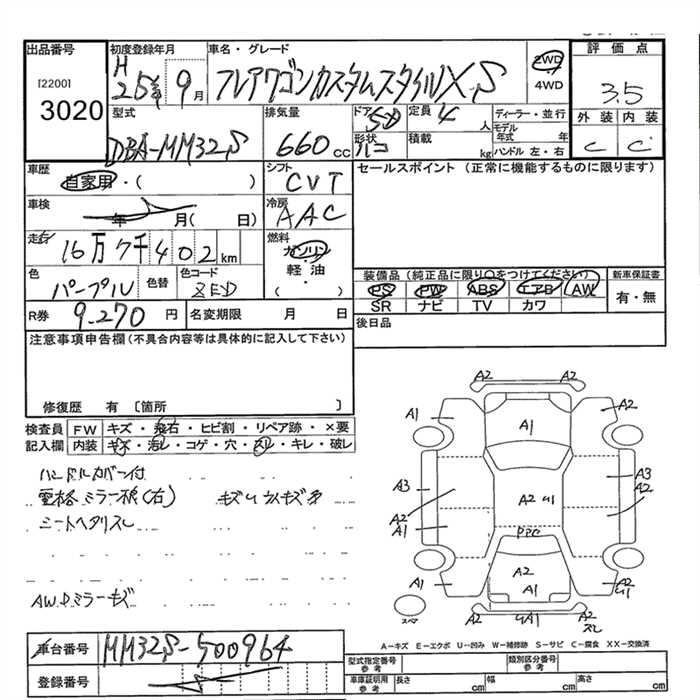 出品番号
[2200]
3020
初度登録年月
H
25年 9月
車名・グレード
フレアワゴンカスタムスタイルXS
2WD
4WD
評価点
3.5
外装 内装
C C
型式
DBA-MM32S
排気量
660 cc
ドア 5D
形状 ハコ
定員 4 人
積載 kg
ディーラー・並行
モデル年式 年
ハンドル 左・右
車歴
自家用・( )
シフト
CVT
セールスポイント (正常に機能するものに限ります)
車検
年 月( 日)
冷房
AAC
走行
16万7千402km
燃料
ガソリン
軽油
( )
色
パープル
色替
色コード
ZED
装備品(純正品に限り○をつけてください)
PS PW ABS エアB AW
SR ナビ TV カワ
新車保証書
有・無
R券 9,270 円
名変期限 月 日
後日品
注意事項申告欄(不具合内容等は具体的に記入して下さい)
修復歴 有 〔箇所 〕
検査員 FW キズ・飛石・ヒビ割・リペア跡・×要
記入欄 内装 キズ・汚レ・コゲ・穴・スレ・キレ・破レ
ハンドルカバー付
シートヘタリスレ
AW.Dミラーキズ
A2 A2
A1 A1 A2
A3 A2 U1 A3
A2 A2
A1 PPC
A1 A2 A2
A1 U1
スペア UA1 A2
スレ
A-キズ E-エクボ U-凹み W-補修跡 S-サビ C-腐食 XX-交換済
車台番号 MM32S-500964
登録番号
型式指定番号 参考
類別区分番号 参考
車庫証明用 参考 長さ cm 幅 cm 高さ cm